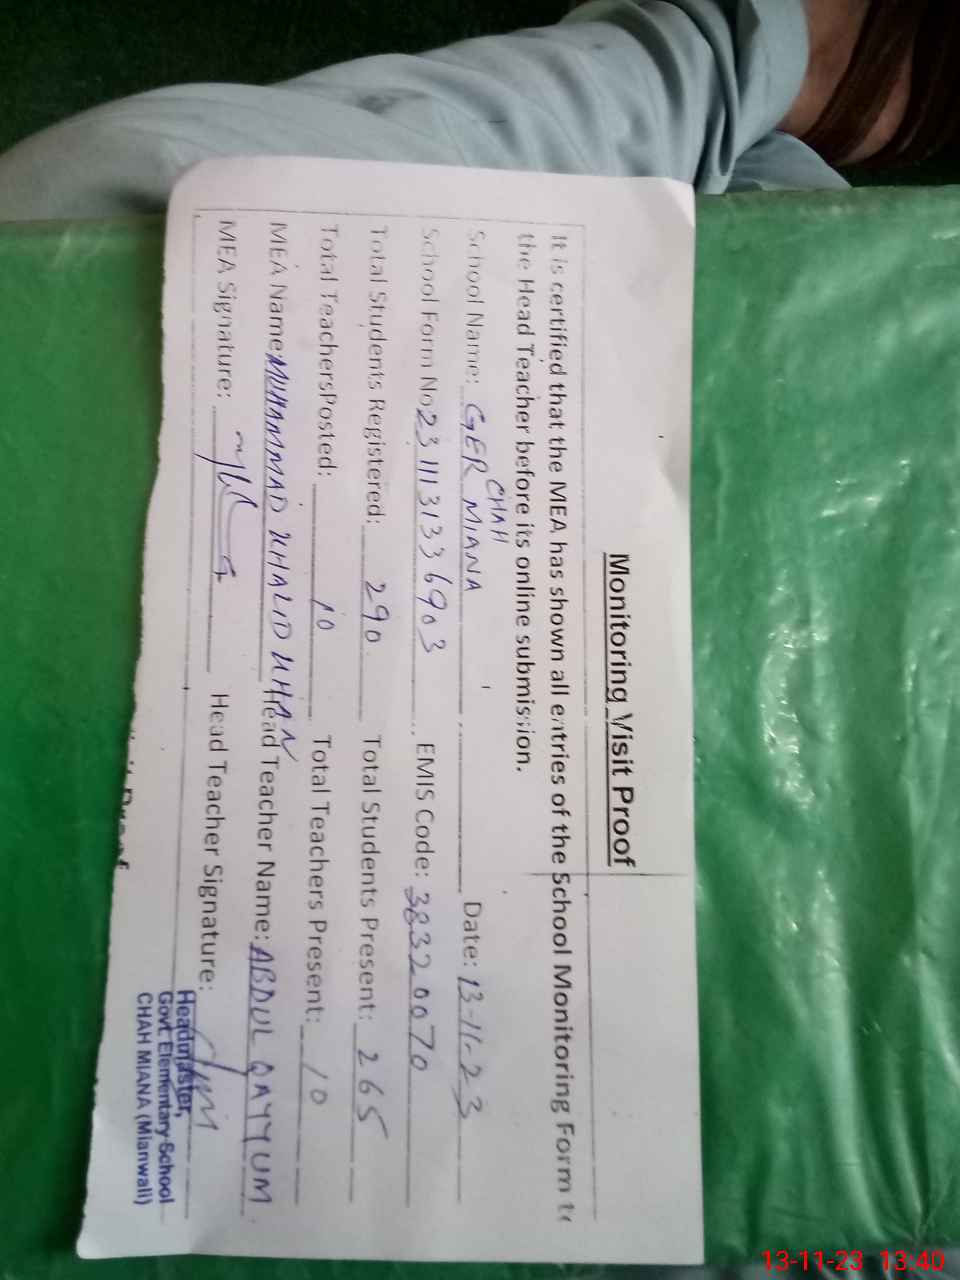 Monitoring Visit Proof
It is certified that the MEA has shown all entries of the School Monitoring Form to
the Head Teacher before its online submission.
CHAH
School Name: GER MIANA Date: 13-11-23
School Form No 2311131336903 EMIS Code: 38320070
Total Students Registered: 290 Total Students Present: 265
Total TeachersPosted: 10 Total Teachers Present: 10
MEA Name: MUHAMMAD KHALID KHAN Head Teacher Name: ABDUL QAYYUM.
MEA Signature: Head Teacher Signature:
Headmaster,
Govt. Elementary School
CHAH MIANA (Mianwali)
13-11-23 13:40